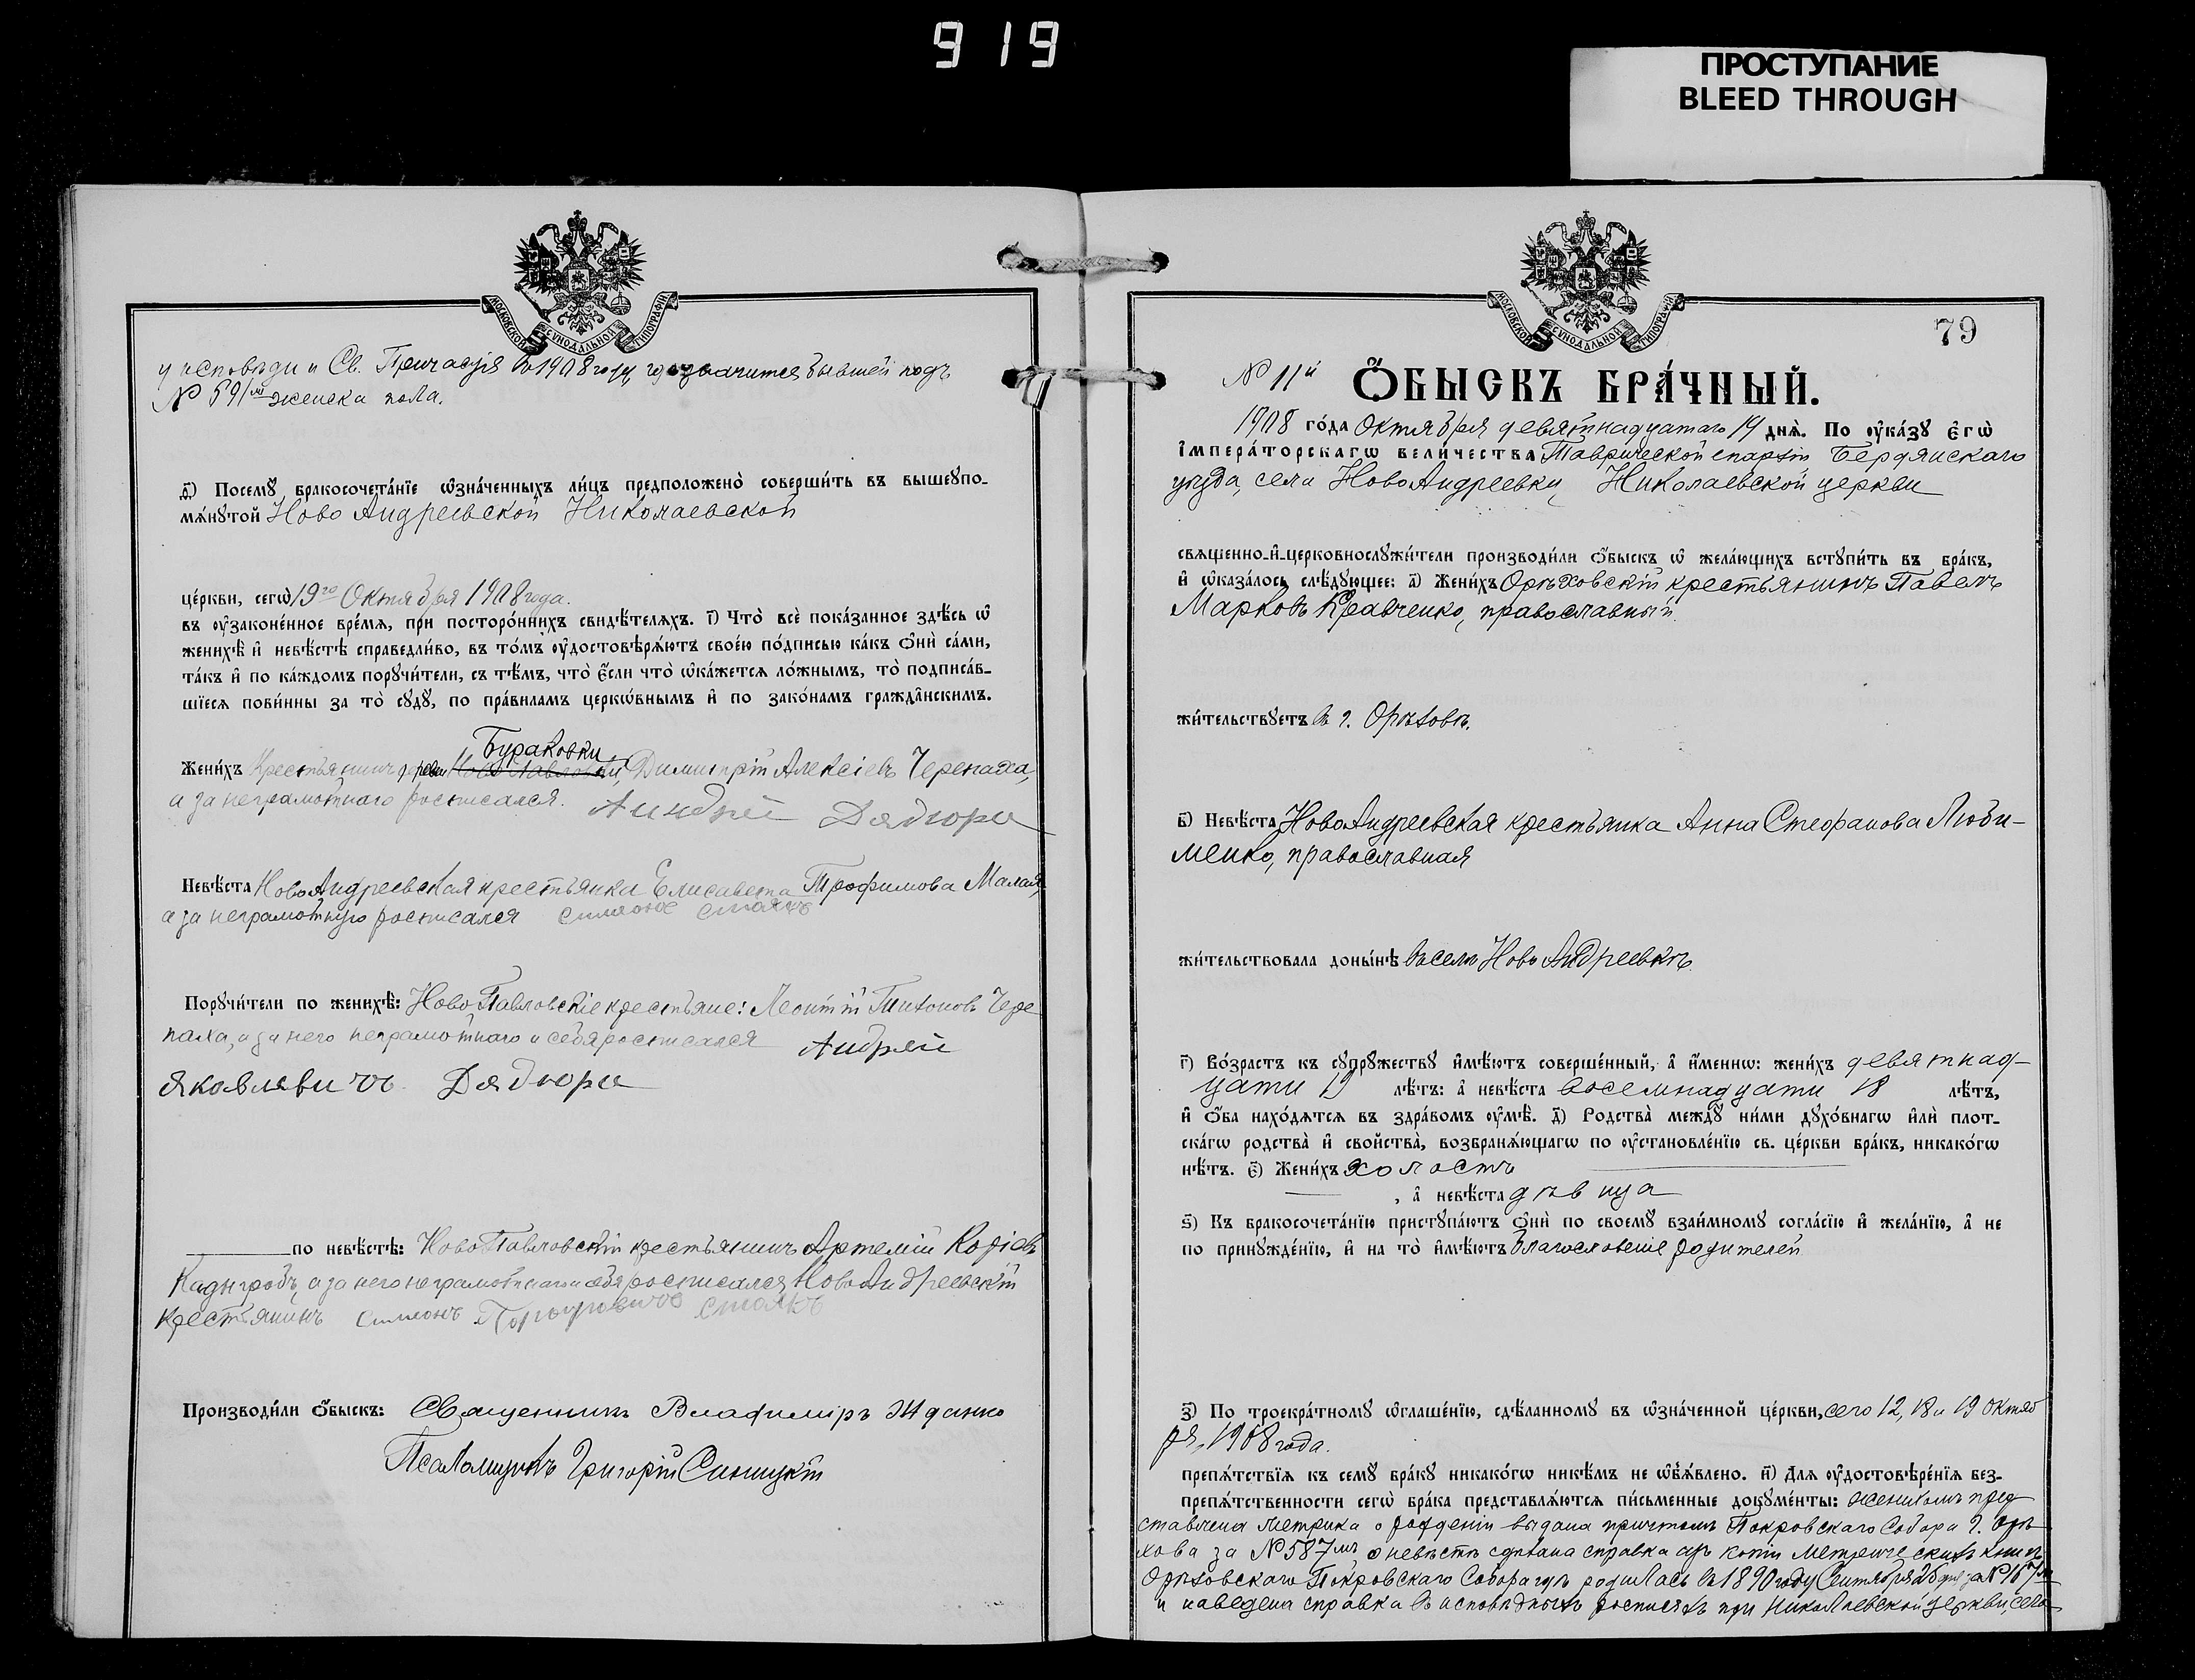 919
ПРОСТУПАНИЕ
BLEED THROUGH
МОСКОВСКОЙ СѴНОДАЛЬНОЙ ТИПОГРАФІИ
у исповѣди и Св. Причастія въ 1908 году значится бывшей подъ
№ 591 женска пола.
д҃) Посемꙋ̀ бракосочета́нїе ѡ҆зна́ченныхъ ли́цъ предположено̀ соверши́ть въ вышеꙋпо-
мѧ́нꙋтой Ново Андреевской Николаевской
це́ркви, сегѡ̀ 19го Октября 1908 года.
въ ᲂу҆законе́нное вре́мѧ, при посторо́ннихъ свидѣ́телѧхъ. і҃) Что̀ всѐ пока́занное здѣ́сь ѡ҆
женихѣ̀ и҆ невѣ́стѣ справедли́во, въ то́мъ ᲂу҆достовѣрѧ́ютъ свое́ю по́дписью ка́къ ѻ҆нѝ са́ми,
та́къ и҆ по ка́ждомъ порꙋчи́тели, съ тѣ́мъ, что̀ є҆́сли что̀ ѡ҆ка́жетсѧ ло́жнымъ, то̀ подписа́в-
шїесѧ пови́нны за то̀ сꙋдꙋ̀, по пра́виламъ церко́внымъ и҆ по зако́намъ гражда́нскимъ.
Бураковки
Жени́хъ Крестьянинъ деревни Ново Павловки, Димитрій Алексіевъ Черепаха,
а за неграмотнаго росписался. Андрей Дядюра
Невѣ́ста Ново Андреевская крестьянка Елисавета Трофимова Малая,
а за неграмотную росписался Симеонъ
Порꙋчи́тели по женихѣ̀: Ново Павловскіе крестьяне: Леонтій Тихоновъ Чере
паха, а за него неграмотнаго и себя росписался Андрей
Яковлевичъ Дядюра
по невѣ́стѣ: Ново Павловскій крестьянинъ Артемій
а за него неграмотнаго и себя росписался Ново Андреевскій
крестьянинъ Симеонъ
Производи́ли ѻ҆́быскъ: Священникъ Владимиръ Жданко
Псаломщикъ Григорій Синицкій
МОСКОВСКОЙ СѴНОДАЛЬНОЙ ТИПОГРАФІИ
79
№ 11й ѺБЫСКЪ БРА́ЧНЫЙ.
1908 го́да Октября девятнадцатаго 19 днѧ̀. По ᲂу҆ка́зꙋ є҆гѡ̀
і҆мпера́торскагѡ вели́чества Таврической епархіи Бердянскаго
уѣзда, села Ново Андреевки, Николаевской церкви
свѧще́нно-и҆-церковнослꙋжи́тели производи́ли ѻ҆́быскъ ѡ҆ жела́ющихъ встꙋпи́ть въ бра́къ,
и҆ ѡ҆каза́лось слѣ́дꙋющее: а҃) Жени́хъ Орѣховскій крестьянинъ Павелъ
Марковъ Кравченко, православный.
жи́тельствꙋетъ въ г. Орѣховѣ.
в҃) Невѣ́ста Ново Андреевская крестьянка Анна Стефанова Люби-
менко, православная
жи́тельствовала доны́нѣ въ селѣ Ново Андреевкѣ.
г҃) Во́зрастъ къ сꙋпрꙋ́жествꙋ и҆мѣ́ютъ соверше́нный, а҆ и҆́меннѡ: жени́хъ девятнад-
цати 19 лѣ́тъ: а҆ невѣ́ста восемнадцати 18 лѣ́тъ,
и҆ ѻ҆́ба нахо́дѧтсѧ въ здра́вомъ ᲂу҆мѣ̀. д҃) Родства̀ междꙋ̀ ни́ми дꙋхо́внагѡ и҆лѝ плот-
ска́гѡ родства̀ и҆ сво́йства̀, возбранѧ́ющагѡ по ᲂу҆становле́нїю св. це́ркви бра́къ, никако́гѡ
нѣ́тъ. є҃) Жени́хъ холостъ
, а҆ невѣ́ста дѣвица
ѕ҃) Къ бракосочета́нїю пристꙋпа́ютъ ѻ҆нѝ по своемꙋ̀ взаи́мномꙋ согла́сїю и҆ жела́нїю, а҆ не
по принꙋжде́нїю, и҆ на то̀ и҆мѣ́ютъ благословеніе родителей
з҃) По троекра́тномꙋ ѡ҆глаше́нїю, сдѣ́ланномꙋ въ ѡ҆зна́ченной це́ркви, сего 12, 18 и 19 Октяб
ря, 1908 года.
препѧ́тствїѧ къ семꙋ̀ бра́кꙋ никако́гѡ никѣ́мъ не ѡ҆б̾ѧ́влено. и҃) Для ᲂу҆достовѣре́нїѧ без-
препѧ́тственности сегѡ̀ бра́ка представлѧ́ютсѧ пи́сьменные докꙋме́нты: женихомъ пред
ставлена метрика о рожденіи выдана причтомъ Покровскаго Собора г. Орѣ
хова за № 587мъ о невѣстѣ сдѣлана справка въ копіи метрическихъ книгъ
Орѣховскаго Покровскаго Собора гдѣ родилась въ 1890 году Сентября 25 дня за № 167
и наведена справка въ исповѣдныхъ росписяхъ при Николаевской церкви, села